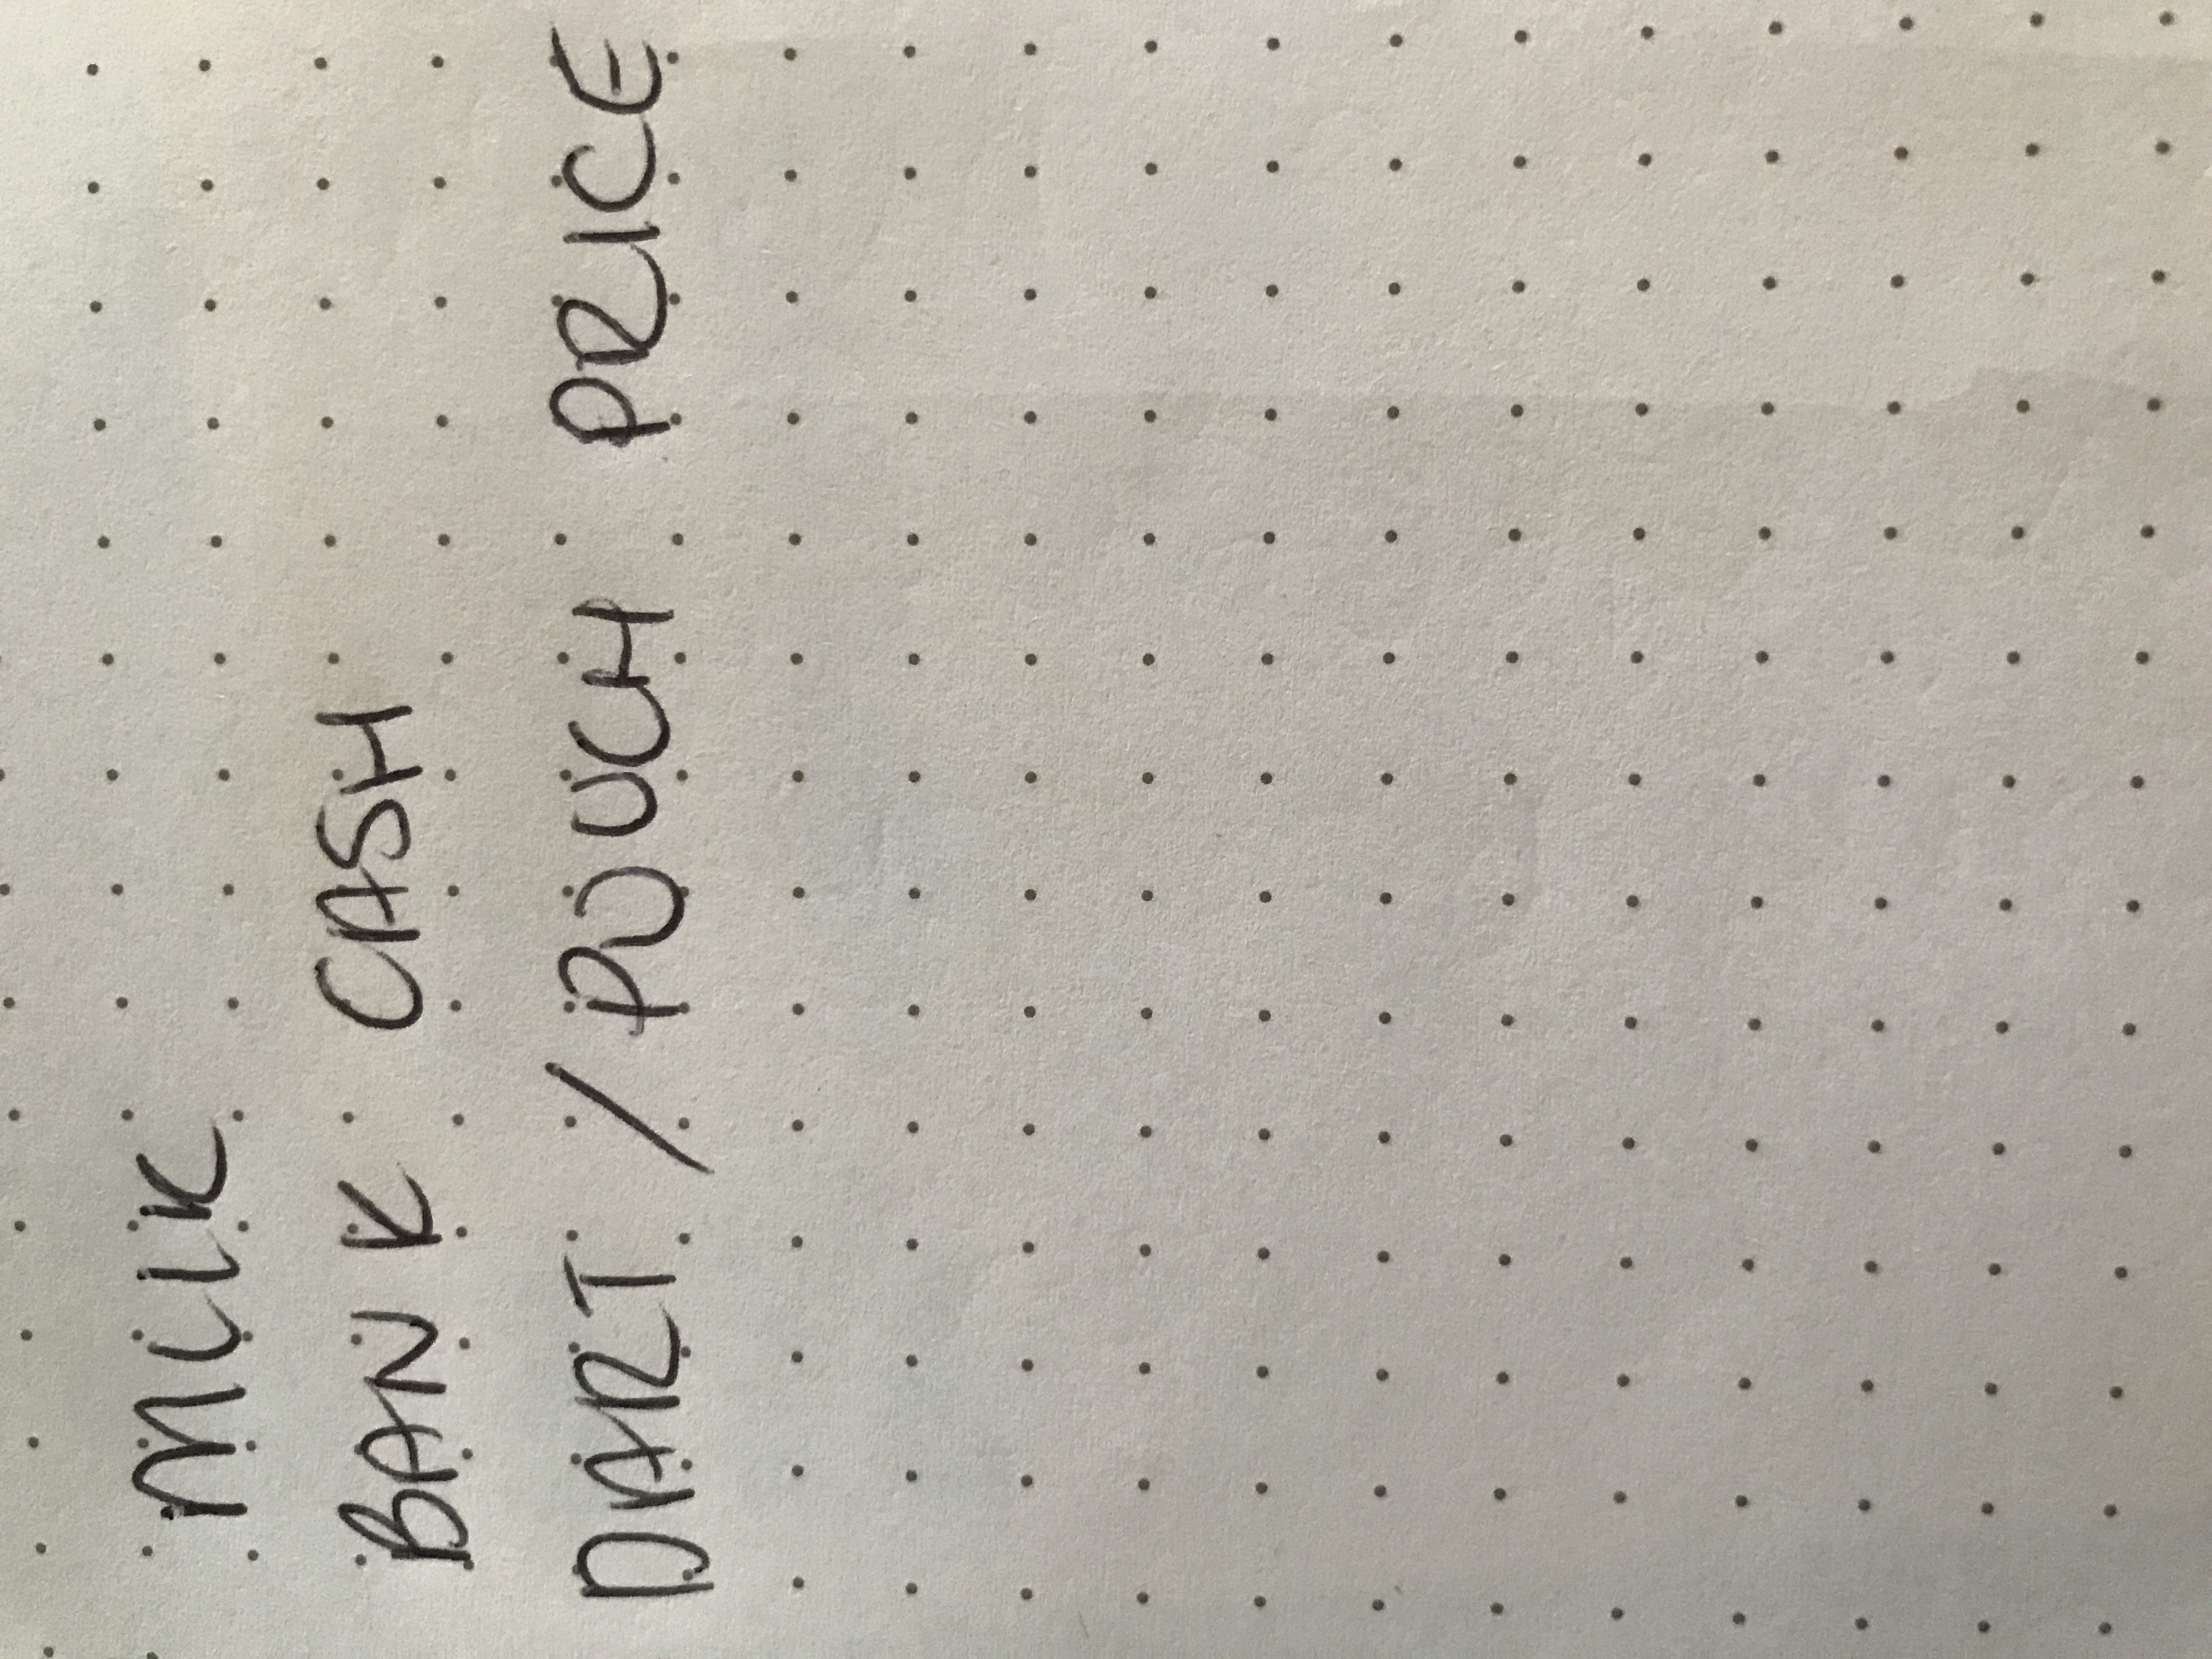 MILK
BANK CASH
DART / POUCH PRICE